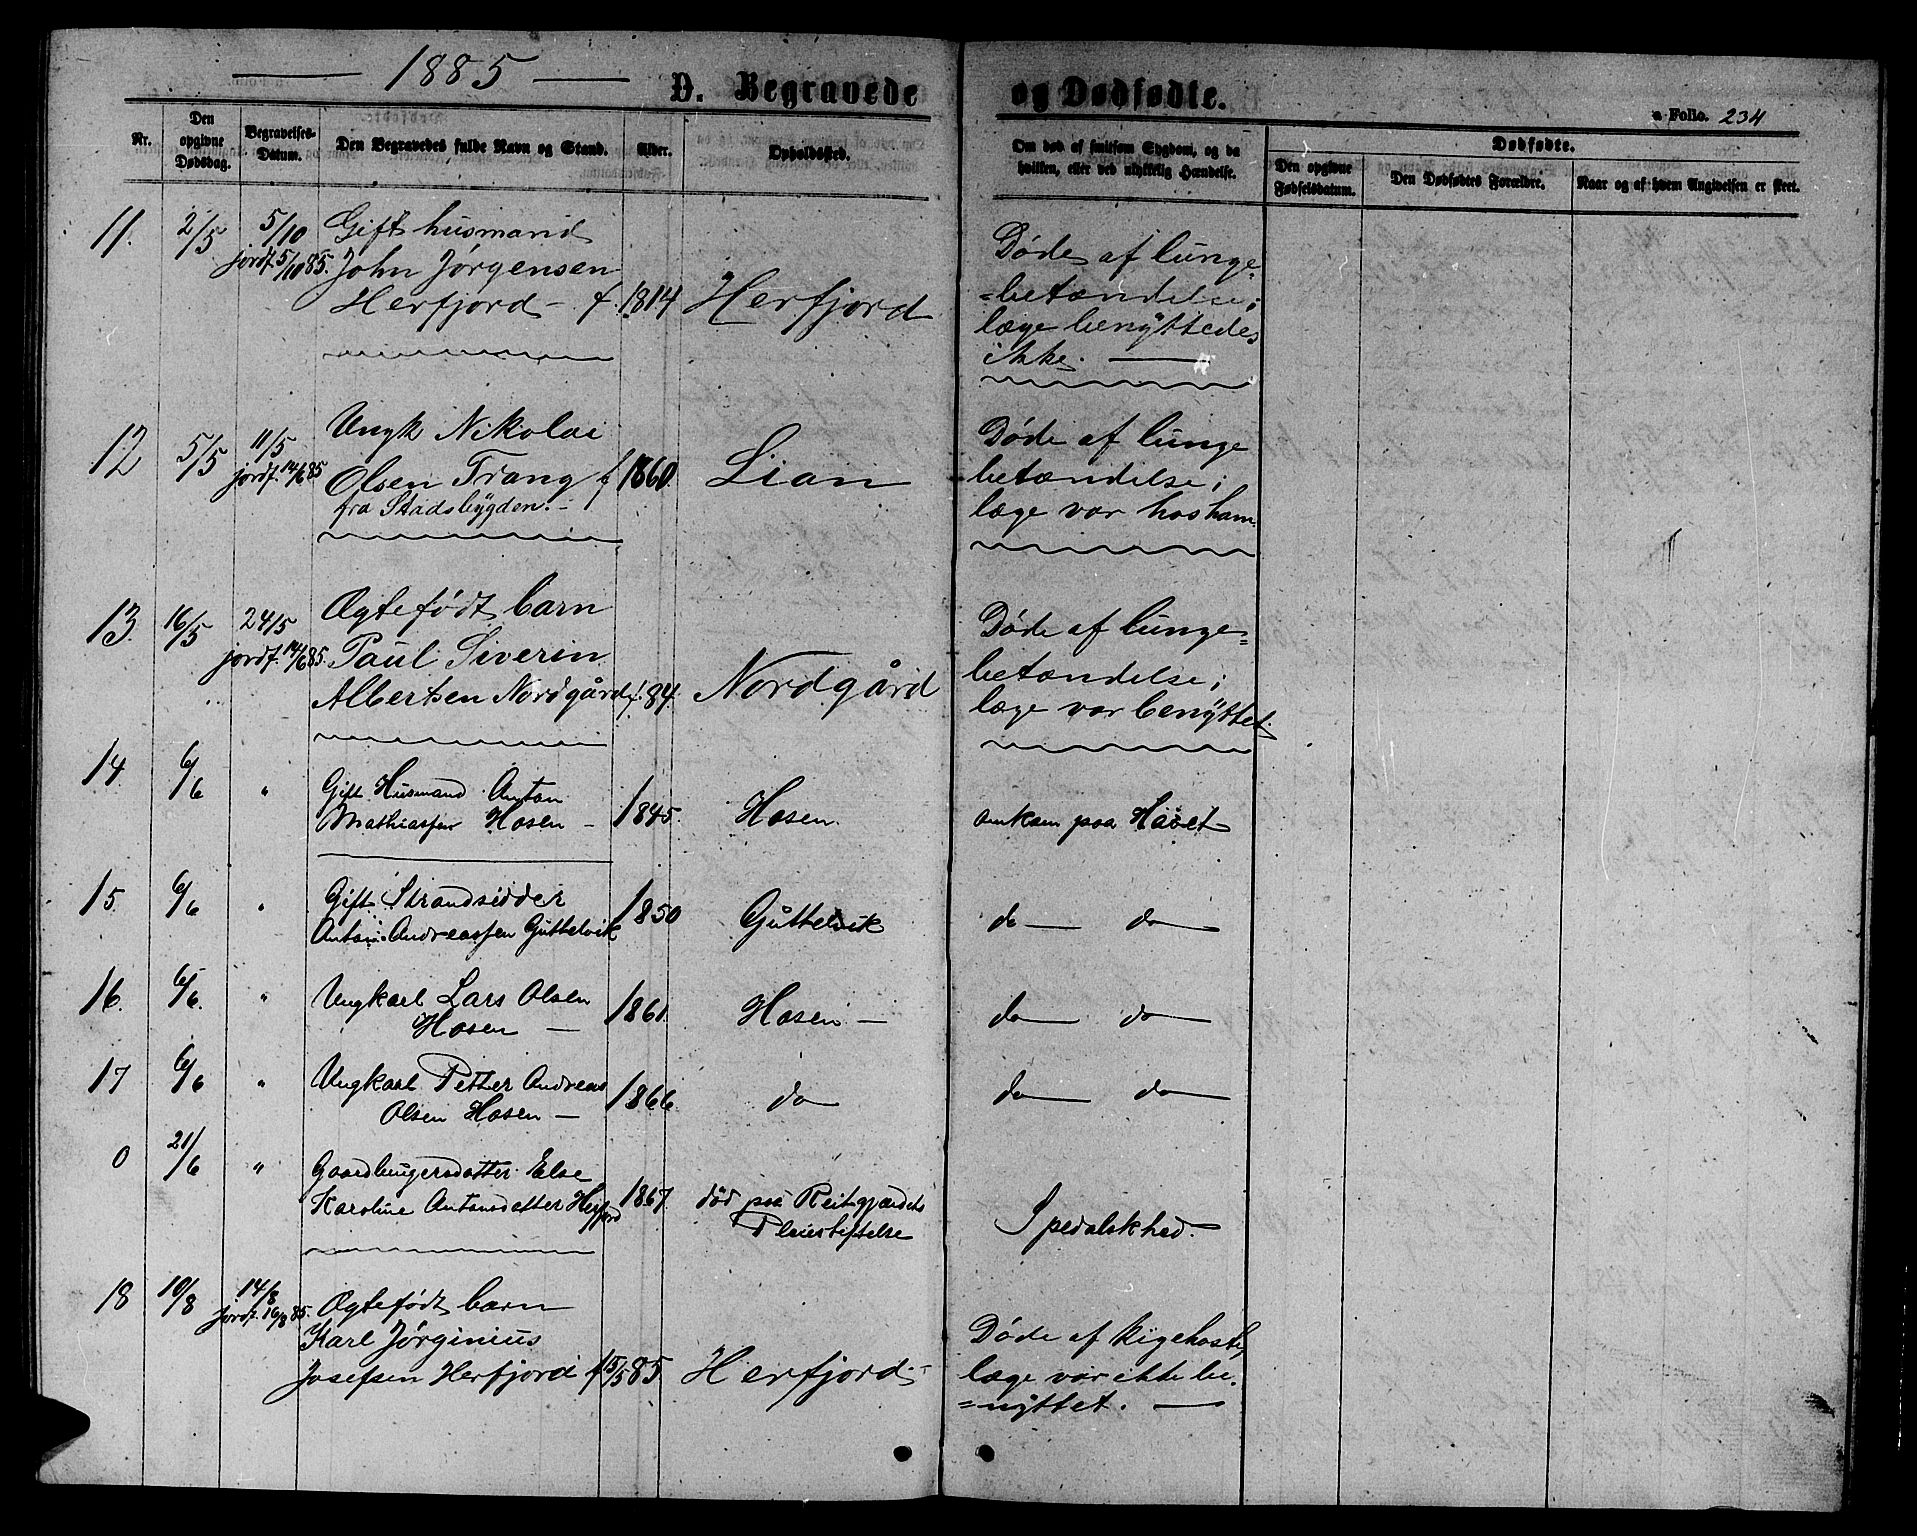 1885
D. Begravede og Dødfødte.
Folio. 234
Nr.
Den opgivne Dødsdag.
Begravelses-Datum.
Den Begravedes fulde Navn og Stand.
Alder.
Opholdssted.
Om død af smitsom Sygdom, og da hvilken, eller ved ulykkelig Hændelse.
Dødfødte.
Den opgivne Fødselsdatum.
Den Dødfødtes Forældre.
Naar og af hvem Angivelsen er skeet.
11. 2/5 5/10 Gift husmand
jordf. 5/10 85. John Jørgensen
Herfjord - f. 1814 Herfjord
Døde af lunge=
=betændelse;
læge benyttedes
ikke.
12 5/5 11/5 Ungk Nikolai
jordf. 14/6 85 Olsen Trang f 1860. Lian
fra Stadsbygden.-
Døde af lunge
betændelse;
læge var hos ham.
13. 16/5 24/5 Ægtefødt barn
jordf. 14/6 85. Paul Siverin
Albertsen Nordgård f. 84. Nordgård
Døde af lunge=
betændelse;
læge var benyttet.
14 6/6 " Gift Husmand Anton
Mathiassen Hosen - 1845. Hosen. omkom paa Havet
15. 6/6 " Gift Strandsidder
Anton Andreassen Guttelvik 1850 Guttelvik do do
16. 6/6. " Ungkarl Lars Olsen
Hosen - 1861. Hosen - do do
17 6/6 " Ungkarl Petter Andreas
Olsen Hosen - 1866. do do do
0 21/6 " Gaardbrugersdatter Else
Karoline Antonsdatter Herfjord 1867. død paa Reitgjærdets
Pleiestiftelse Spedalskhed.
18 10/8 14/8 Ægtefødt barn
jordf. 16/8 85. Karl Jørginius
Josefsen Herfjord f 15/5 85 Herfjord -
Døde af kighoste,
læge var ikke be=
=nyttet.